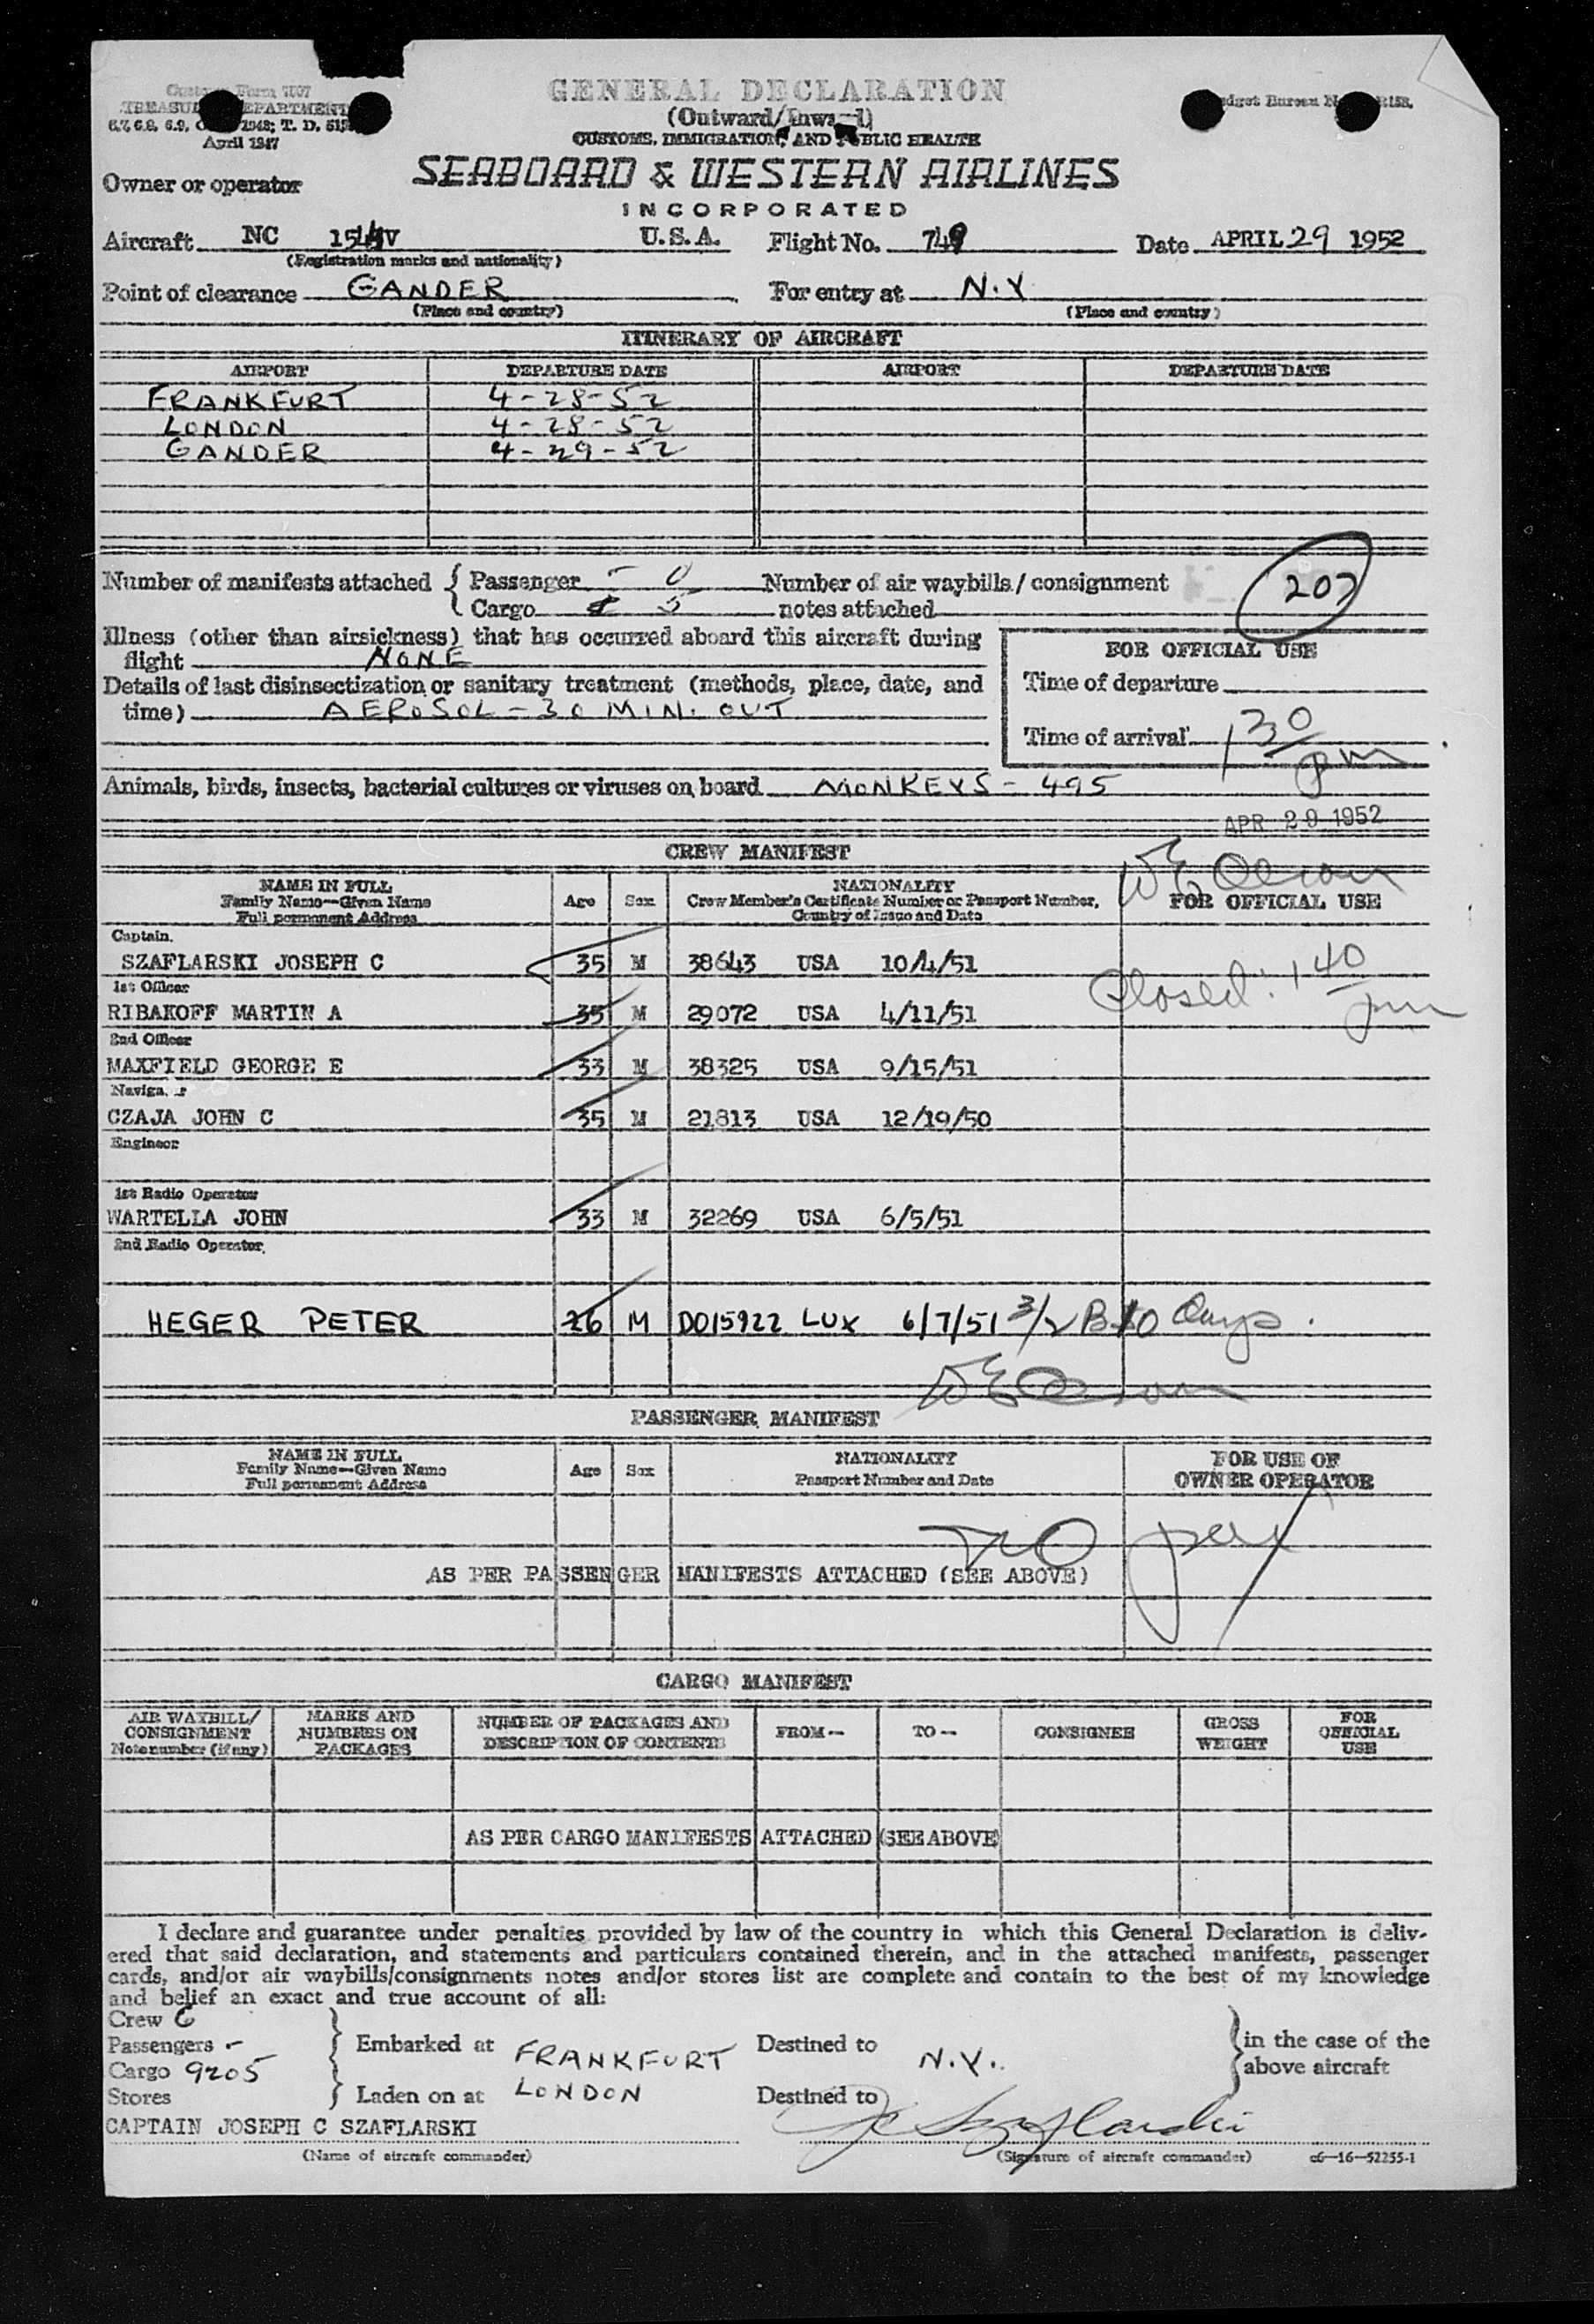 GENERAL DECLARATION
(Outward/Inward)
CUSTOMS, IMMIGRATION, AND PUBLIC HEALTH
Customs Form 7507
TREASURY DEPARTMENT
April 1947
SEABOARD & WESTERN AIRLINES
INCORPORATED
Owner or operator
Aircraft NC U.S.A. Flight No. Date APRIL 29 1952
(Registration marks and nationality)
Point of clearance GANDER For entry at N.Y
(Place and country) (Place and country)
ITINERARY OF AIRCRAFT
AIRPORT DEPARTURE DATE AIRPORT DEPARTURE DATE
FRANKFURT 4-28-52
LONDON 4-28-52
GANDER 4-29-52
Number of manifests attached { Passenger - 0 Number of air waybills/consignment 207
Cargo 5 notes attached
Illness (other than airsickness) that has occurred aboard this aircraft during
flight NONE
FOR OFFICIAL USE
Details of last disinsectization or sanitary treatment (methods, place, date, and
time) AEROSOL - 30 MIN. OUT
Time of departure
Time of arrival 1 30 pm
Animals, birds, insects, bacterial cultures or viruses on board MONKEYS - 495
APR 29 1952
CREW MANIFEST
NAME IN FULL
Family Name—Given Name
Full permanent Address
Age Sex
NATIONALITY
Crew Member's Certificate Number or Passport Number,
Country of Issue and Date
FOR OFFICIAL USE
Captain.
SZAFLARSKI JOSEPH C 35 M 38643 USA 10/4/51
Closed: 1 40 pm
1st Officer
RIBAKOFF MARTIN A 35 M 29072 USA 4/11/51
2nd Officer
MAXFIELD GEORGE E 33 M 38325 USA 9/15/51
Navigator
CZAJA JOHN C 35 M 21813 USA 12/19/50
Engineer
1st Radio Operator
WARTELLA JOHN 33 M 32269 USA 6/5/51
2nd Radio Operator
HEGER PETER 26 M D015922 LUX 6/7/51 3/2 B 10 days.
PASSENGER MANIFEST
NAME IN FULL
Family Name—Given Name
Full permanent Address
Age Sex
NATIONALITY
Passport Number and Date
FOR USE OF
OWNER OPERATOR
no pax
AS PER PASSENGER MANIFESTS ATTACHED (SEE ABOVE)
CARGO MANIFEST
AIR WAYBILL/
CONSIGNMENT
Note number (if any)
MARKS AND
NUMBERS ON
PACKAGES
NUMBER OF PACKAGES AND
DESCRIPTION OF CONTENTS
FROM— TO— CONSIGNEE
GROSS
WEIGHT
FOR
OFFICIAL
USE
AS PER CARGO MANIFESTS ATTACHED (SEE ABOVE)
I declare and guarantee under penalties provided by law of the country in which this General Declaration is deliv-
ered that said declaration, and statements and particulars contained therein, and in the attached manifests, passenger
cards, and/or air waybills/consignments notes and/or stores list are complete and contain to the best of my knowledge
and belief an exact and true account of all:
Crew 6
Passengers - Embarked at FRANKFURT Destined to N.Y. in the case of the
Cargo 9205 above aircraft
Stores Laden on at LONDON Destined to
CAPTAIN JOSEPH C SZAFLARSKI
(Name of aircraft commander) (Signature of aircraft commander) c6—16—52255-1